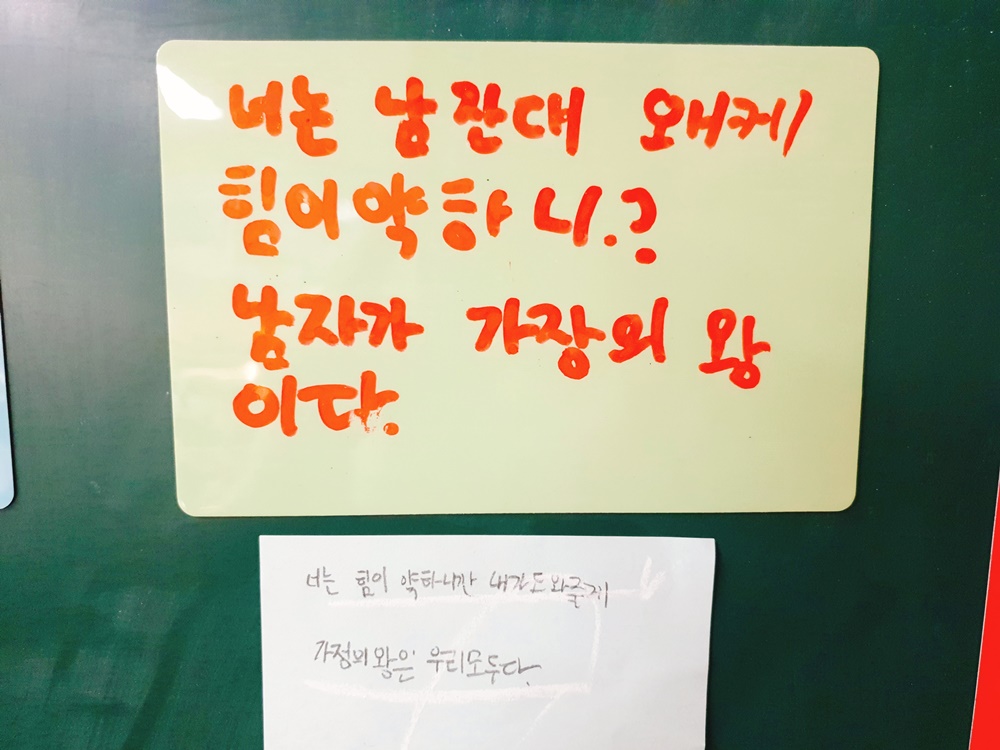 너는 남잔대 왜케
힘이약하니.?
남자가 가장의 왕
이다.
너는 힘이 약하니깐 내가도와줄게
가정의왕은 우리모두다.